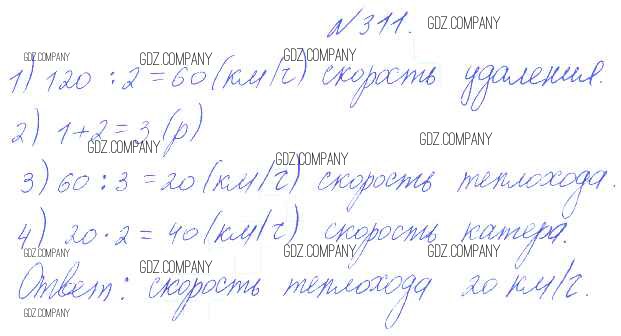 №311. GDZ.COMPANY
GDZ.COMPANY GDZ.COMPANY GDZ.COMPANY
1) 120 : 2 = 60 (км/ч) скорость удаления.
2) 1 + 2 = 3 (р)
GDZ.COMPANY GDZ.COMPANY GDZ.COMPANY
3) 60 : 3 = 20 (км/ч) скорость теплохода.
4) 20 · 2 = 40 (км/ч) скорость катера.
GDZ.COMPANY GDZ.COMPANY GDZ.COMPANY GDZ.COMPANY
Ответ: скорость теплохода 20 км/ч.
GDZ.COMPANY